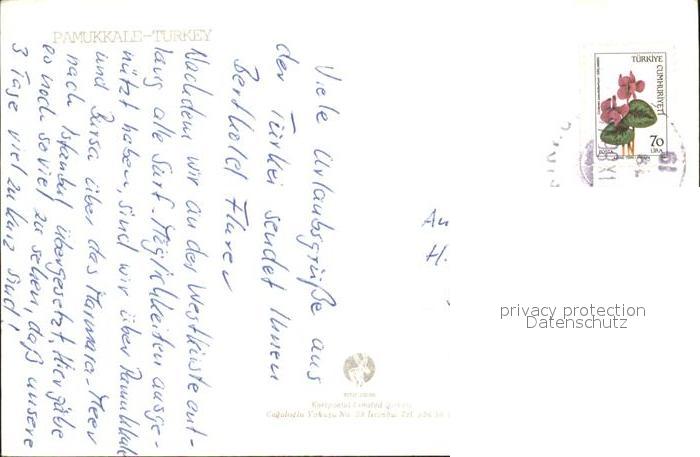 PAMUKKALE-TURKEY
Viele Urlaubsgrüße aus
der Türkei sendet Ihnen
Berthold
Nachdem wir an der Westküste ent-
lang alle Surf-Möglichkeiten ausge-
nützt haben, sind wir über Pamukkale
und Bursa über das Marmara-Meer
nach Istanbul übergesetzt. Hier gäbe
es noch soviel zu sehen, daß unsere
3 Tage viel zu kurz sind!
TÜRKİYE
CUMHURİYETİ
70
LİRA
An
H.
privacy protection
Datenschutz
Keskpostal Limited Şirketi
Cağaloğlu Yokuşu No.